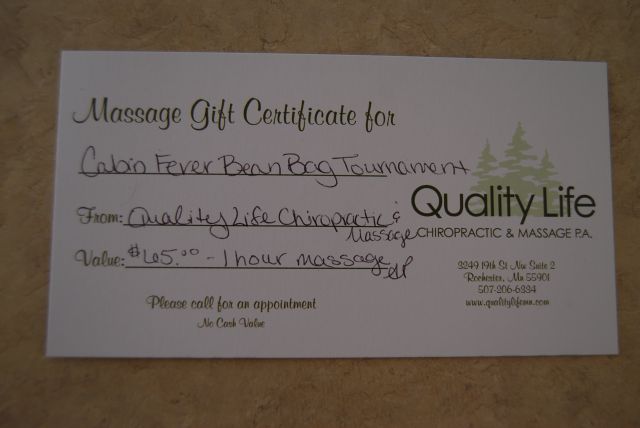 Massage Gift Certificate for
Cabin Fever Bean Bag Tournament
From: Quality Life Chiropractic &
Massage
Value: $65.00 - 1 hour massage
Please call for an appointment
No Cash Value
Quality Life
CHIROPRACTIC & MASSAGE P.A.
3249 19th St Nw Suite 2
Rochester, Mn 55901
507-206-6334
www.qualitylifemn.com